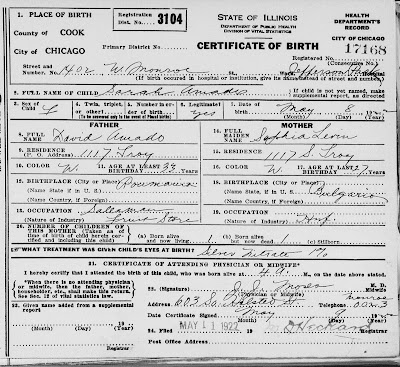 1. PLACE OF BIRTH
Registration Dist. No. 3104
STATE OF ILLINOIS
DEPARTMENT OF PUBLIC HEALTH
DIVISION OF VITAL STATISTICS
HEALTH DEPARTMENT'S RECORD
County of COOK
City of CHICAGO
Primary District No.
CERTIFICATE OF BIRTH
CITY OF CHICAGO
Registered No. 17168
(Consecutive No.)
Street and Number, No. W. Monroe St. Jefferson Park
(If birth occurred in hospital or institution, give its name instead of street and number.)
2. FULL NAME OF CHILD Sarah Amado
If child is not yet named, make supplemental report, as directed.
3. Sex of Child F
4. Twin, triplet, or other?
Number in order of birth
(To be answered only in the event of Plural births)
6. Legitimate? yes
7. Date of birth May 8 19
(Month) (Day) (Year)
FATHER
MOTHER
8. FULL NAME David Amado
14. FULL MAIDEN NAME Sophia Levin
9. RESIDENCE (P. O. Address) 1117 S Troy
15. RESIDENCE (P. O. Address) 1117 S. Troy
10. COLOR W.
11. AGE AT LAST BIRTHDAY (Years)
16. COLOR W
17. AGE AT LAST BIRTHDAY 27 (Years)
12. BIRTHPLACE (City or Place) Roumania
(Name State, if in U. S.)
(Name Country, if Foreign)
18. BIRTHPLACE (City or Place)
(Name State, if in U. S.) Bulgaria
(Name Country, if Foreign)
13. OCCUPATION Salesman
(Nature of Industry) Store
19. OCCUPATION
(Nature of Industry) Hwf.
20. NUMBER OF CHILDREN OF THIS MOTHER (Taken as of time of birth of child herein certified and including this child)
(a) Born alive and now living 1
(b) Born alive but now dead 0
(c) Stillborn
WHAT TREATMENT WAS GIVEN CHILD'S EYES AT BIRTH? Silver Nitrate 1%
21. CERTIFICATE OF ATTENDING PHYSICIAN OR MIDWIFE*
I hereby certify that I attended the birth of this child, who was born alive at M., on the date above stated.
*When there is no attending physician or midwife, then the father, mother, householder, etc., shall make this return. See Sec. 12 of vital statistics law.
22. (Signature) Moses M. D.
(Physician or Midwife) Midwife
Address 603 So. Halsted St. Telephone Monroe
Date Certificate Signed May 9 19
(Month) (Day) (Year)
23. Given name added from a supplemental report
19
(Month) (Day) (Year)
24. Filed MAY 11 1922
Registrar
Post Office Address